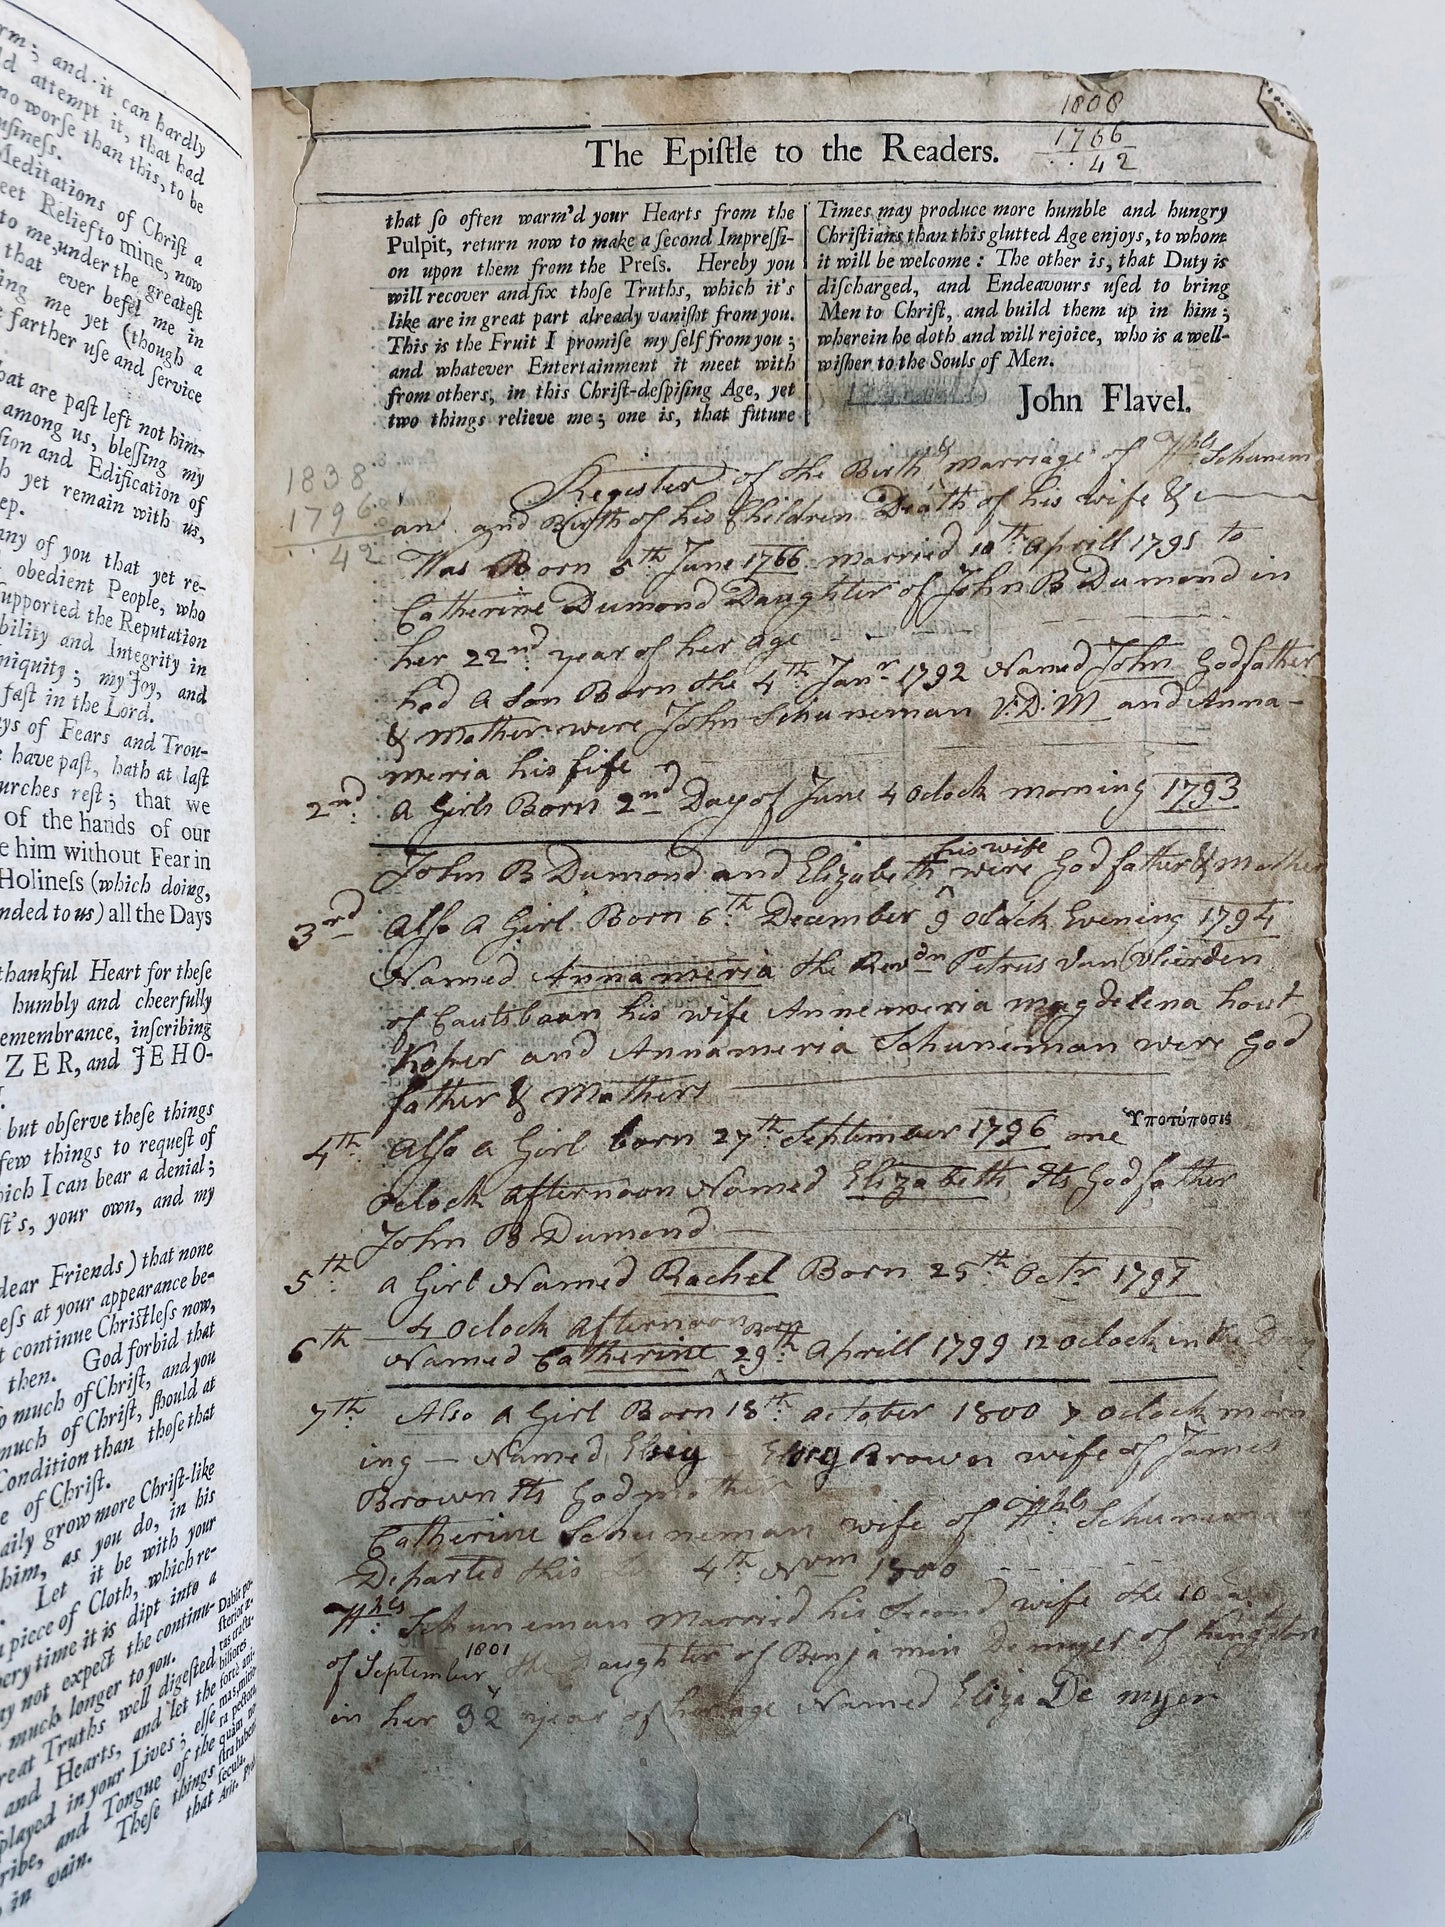 rm; and it can hardly
ld attempt it, that had
no worſe than this, to be
uſineſs.
Meditations of Chriſt a
eet Relief to mine, now
to me, under the greateſt
that ever befel me in
ing me yet (though a
farther uſe and ſervice
hat are paſt left not him-
among us, bleſſing my
ſion and Edification of
h yet remain with us,
ep.
any of you that yet re-
obedient People, who
ſupported the Reputation
bility and Integrity in
niquity; my Joy, and
faſt in the Lord.
ys of Fears and Trou-
have paſt, hath at laſt
urches reſt; that we
of the hands of our
e him without Fear in
Holineſs (which doing,
nded to us) all the Days
thankful Heart for theſe
humbly and cheerfully
emembrance, inſcribing
ZER, and JEHO-
but obſerve theſe things
few things to requeſt of
hich I can bear a denial;
ſt's, your own, and my
dear Friends) that none
eſs at your appearance be-
t continue Chriſtleſs now,
then. God forbid that
o much of Chriſt, and you
much of Chriſt, ſhould at
Condition than thoſe that
e of Chriſt.
aily grow more Chriſt-like
him, as you do, in his
Let it be with your
a piece of Cloth, which re-
very time it is dipt into a
ay not expect the continu-
much longer to you.
reat Truths well digeſted
and Hearts, and let the
ſplayed in your Lives; elſe
ribe, and Tongue of the
in vain. Theſe things
that
1808
1766
42
The Epiſtle to the Readers.
that ſo often warm'd your Hearts from the
Pulpit, return now to make a ſecond Impreſſi-
on upon them from the Preſs. Hereby you
will recover and fix thoſe Truths, which it's
like are in great part already vaniſht from you.
This is the Fruit I promiſe my ſelf from you;
and whatever Entertainment it meet with
from others, in this Chriſt-deſpiſing Age, yet
two things relieve me; one is, that future
Times may produce more humble and hungry
Chriſtians than this glutted Age enjoys, to whom
it will be welcome: The other is, that Duty is
diſcharged, and Endeavours uſed to bring
Men to Chriſt, and build them up in him;
wherein he doth and will rejoice, who is a well-
wiſher to the Souls of Men.
John Flavel.
1838
1796
42
Register of the Birth & Marriage of Wm Schunem
an and Birth of his Children Death of his wife &c
Was Born 5th June 1766 married 10th Aprill 1791 to
Catherine Dumond Daughter of John B Dumond in
her 22nd year of her age
had a son Born the 4th Janr 1792 Named John Godfather
& mother were John Schuneman V:D:M and Anna-
meria his fife
2nd a Girls Born 2nd Day of June 4 Oclock morning 1793
his wife
John B Dumond and Elizabeth were Godfather & Mother
3rd Also a Girl Born 6th December 9 oclock Evening 1794
Named Annameria the Revdn Petrus Van Vlierden
of Cautsbaan his wife Annemeria magdelena hout
Koper and Annameria Schuneman were God
father & Mothers
4th Also a Girl born 27th September 1796 one
Ὑποτύπωσις
oclock afternoon Named Elizabeth its Godfather
John B Dumond
5th a Girl Named Rachel Born 25th Octr 1797
4 Oclock afternoon
Born
6th Named Catherine 29th Aprill 1799 12 oclock in the Day
7th Also a Girl Born 18th october 1800 7 oclock morn
ing – Named Brown wife of James
Brown its Godmother
Catherine Schuneman wife of Wm Schunema
Departed this 4th Novm 1800
Wm Schuneman Married his Second wife the 10
of September 1801 the Daughter of Benjamin Demyer of Kingston
in her 32 year of her age Named Eliza De myer